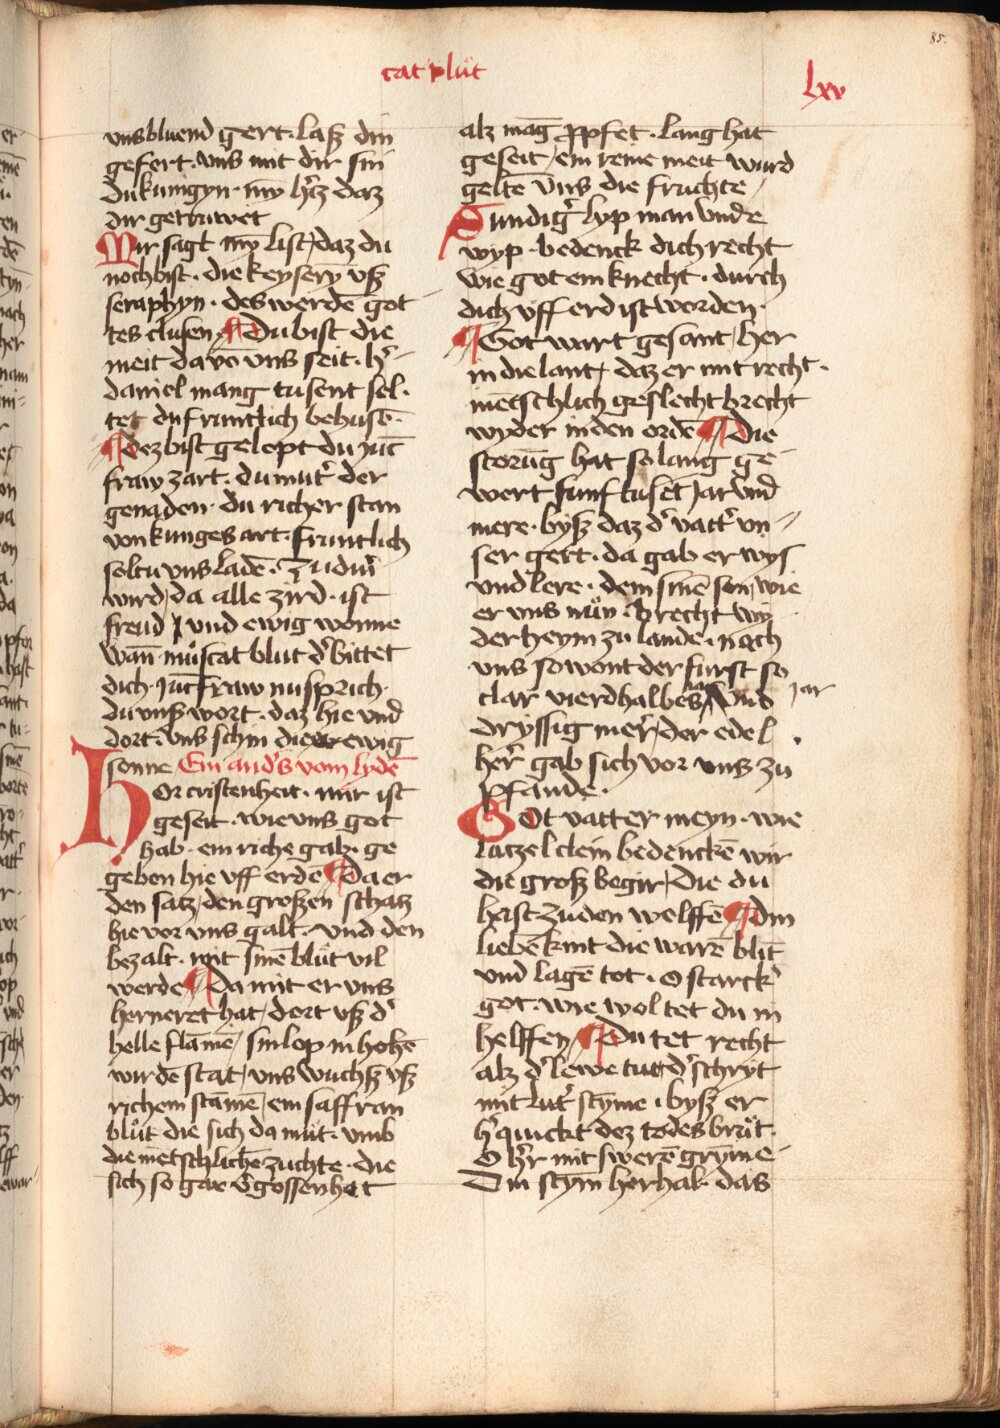 85.
cat plůt
lxv
vns bluend gert. laß din
gefert. vns mit dir sin
du kunigyn. my̅ h'tz daz
dir getruwet
Mir sagt my̅ list / daz du
noch bist. die keysery̅ vß
seraphyn. des werde̅ got
tes clusen ¶ Du bist die
meit da vo̅ vns seit. h'
daniel mang tusent sel.
tet du fruntlich behuse̅.
¶ Dez bist gelopt du juc̅
fraw zart. du mut' der
genaden. du richer stan
von kunges art. fruntlich
soltu vns lade̅. zu din'
wird / da alle zird. ist
freud / vnd ewig wonne
wan̅ můscat blut d' bittet
dich. juc̅fraw nu sprich.
du vnß wort. daz hie vnd
dort. vns schin die ewig
sonne Ein and's vom lyde̅
Hor cristenheit. mir ist
geseit. wie vns got
hab. ein riche gab. ge
geben hie vff erde̅ ¶ Da er
den satz / den großen schatz
hie vor vns galt. vnd den
bezalt. mit sine̅ blůt vil
werde ¶ Da mit er vns
herneret hat / dort vß d'
helle flame̅ / sin lop in hohe̅
wirde̅ stat / vns wuchß vß
richem stame̅ / ein saffran
blůt die sich da můt. vmb
die me̅tschliche̅ zuchte. die
sich so gar v'gossen hat
alz mag̅ ppfet. lang hat
geseit / ein reine meit wurd
gelte̅ vns die fruchte /
Sundig' lyp man vnde
wyp. bedenck dich recht
wie got ein knecht. durch
dich vff erd ist worden.
¶ Got wart gesant / her
in die lant / daz er mit recht.
me̅tschlich geslecht brecht
wyder in den orde̅ ¶ Die
storu̅g hat so lang ge
wert funf tuse̅t jar vnd
mere. byß daz d' vatt' vn
ser gert. da gab er wys
vnd lere. dem sine̅ son / wie
er vns nůn. brecht wy
der heym zu lande. noch
vns so wont der furst so
clar vierdhalbes vnd jar
dryssig mer' / der edel
her' gab sich vor vns zu
pfande.
Got vatter meyn. wie
latzel clein bedencke̅ wir
die groß begir / die du
hast zu den welffe̅ ¶ din
liebe̅ kint die ware̅ blit̅
vnd lage̅ tot. O starck'
got. wie wol tet du in
helffen / ¶ Du tet recht
alz d' lewe tut d' schryt
mit lut' sty̅me. byß er
h'quickt dez todes brůt.
O h'r mit swere̅ gry̅me
Din sty̅m herhab. das